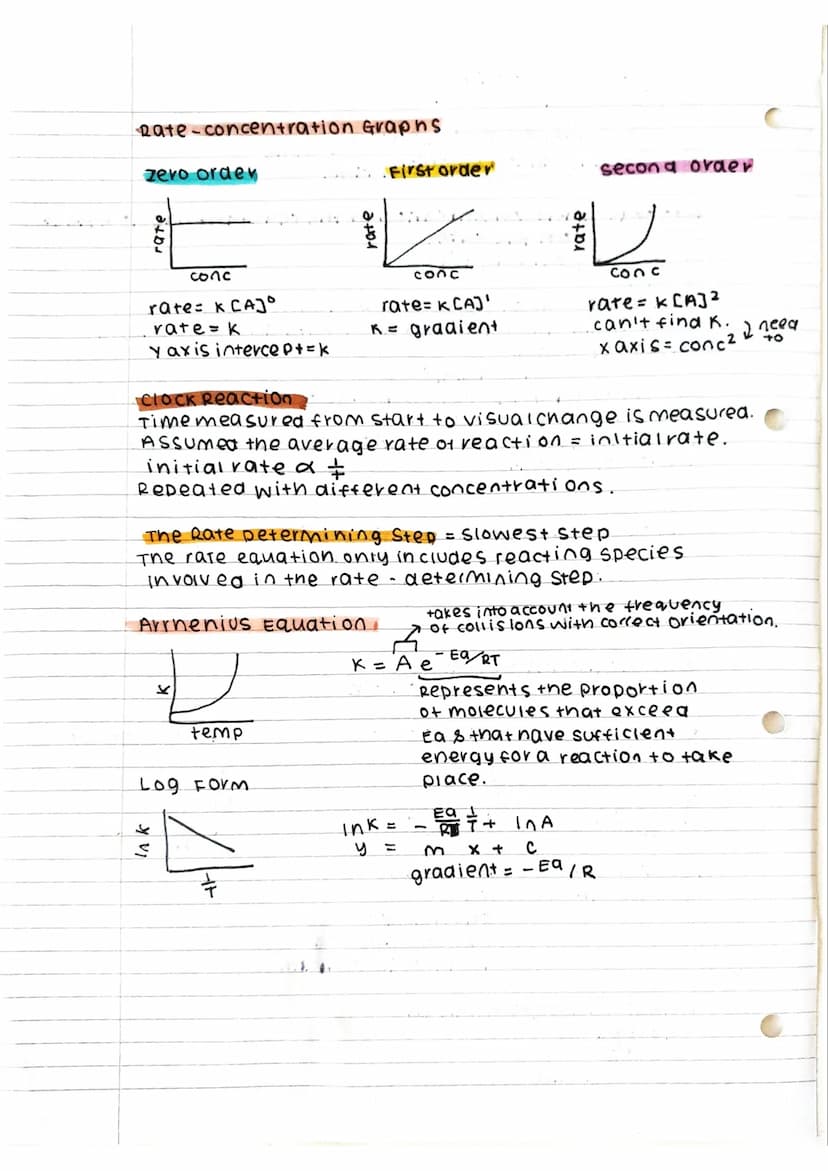 Rate-concentration Graphs
zero order
First order
second order
rate
conc
rate
conc
rate
conc
rate = K[A]⁰
rate = K
y axis intercept = k
rate = K[A]¹
K = gradient
rate = K[A]²
can't find K. need to
x axis = conc²
Clock Reaction
Time measured from start to visual change is measured.
Assumed the average rate of reaction = initial rate.
initial rate ∝ 1/t
Repeated with different concentrations.
The Rate Determining Step = slowest step
The rate equation only includes reacting species
involved in the rate-determining step.
Arrhenius Equation
takes into account the frequency
of collisions with correct orientation.
K = A e^-Ea/RT
K
temp
Represents the proportion
of molecules that exceed
Ea & that have sufficient
energy for a reaction to take
place.
Log Form
ln k
1/T
ln K = - Ea/R 1/T + ln A
y = m x + c
gradient = -Ea/R